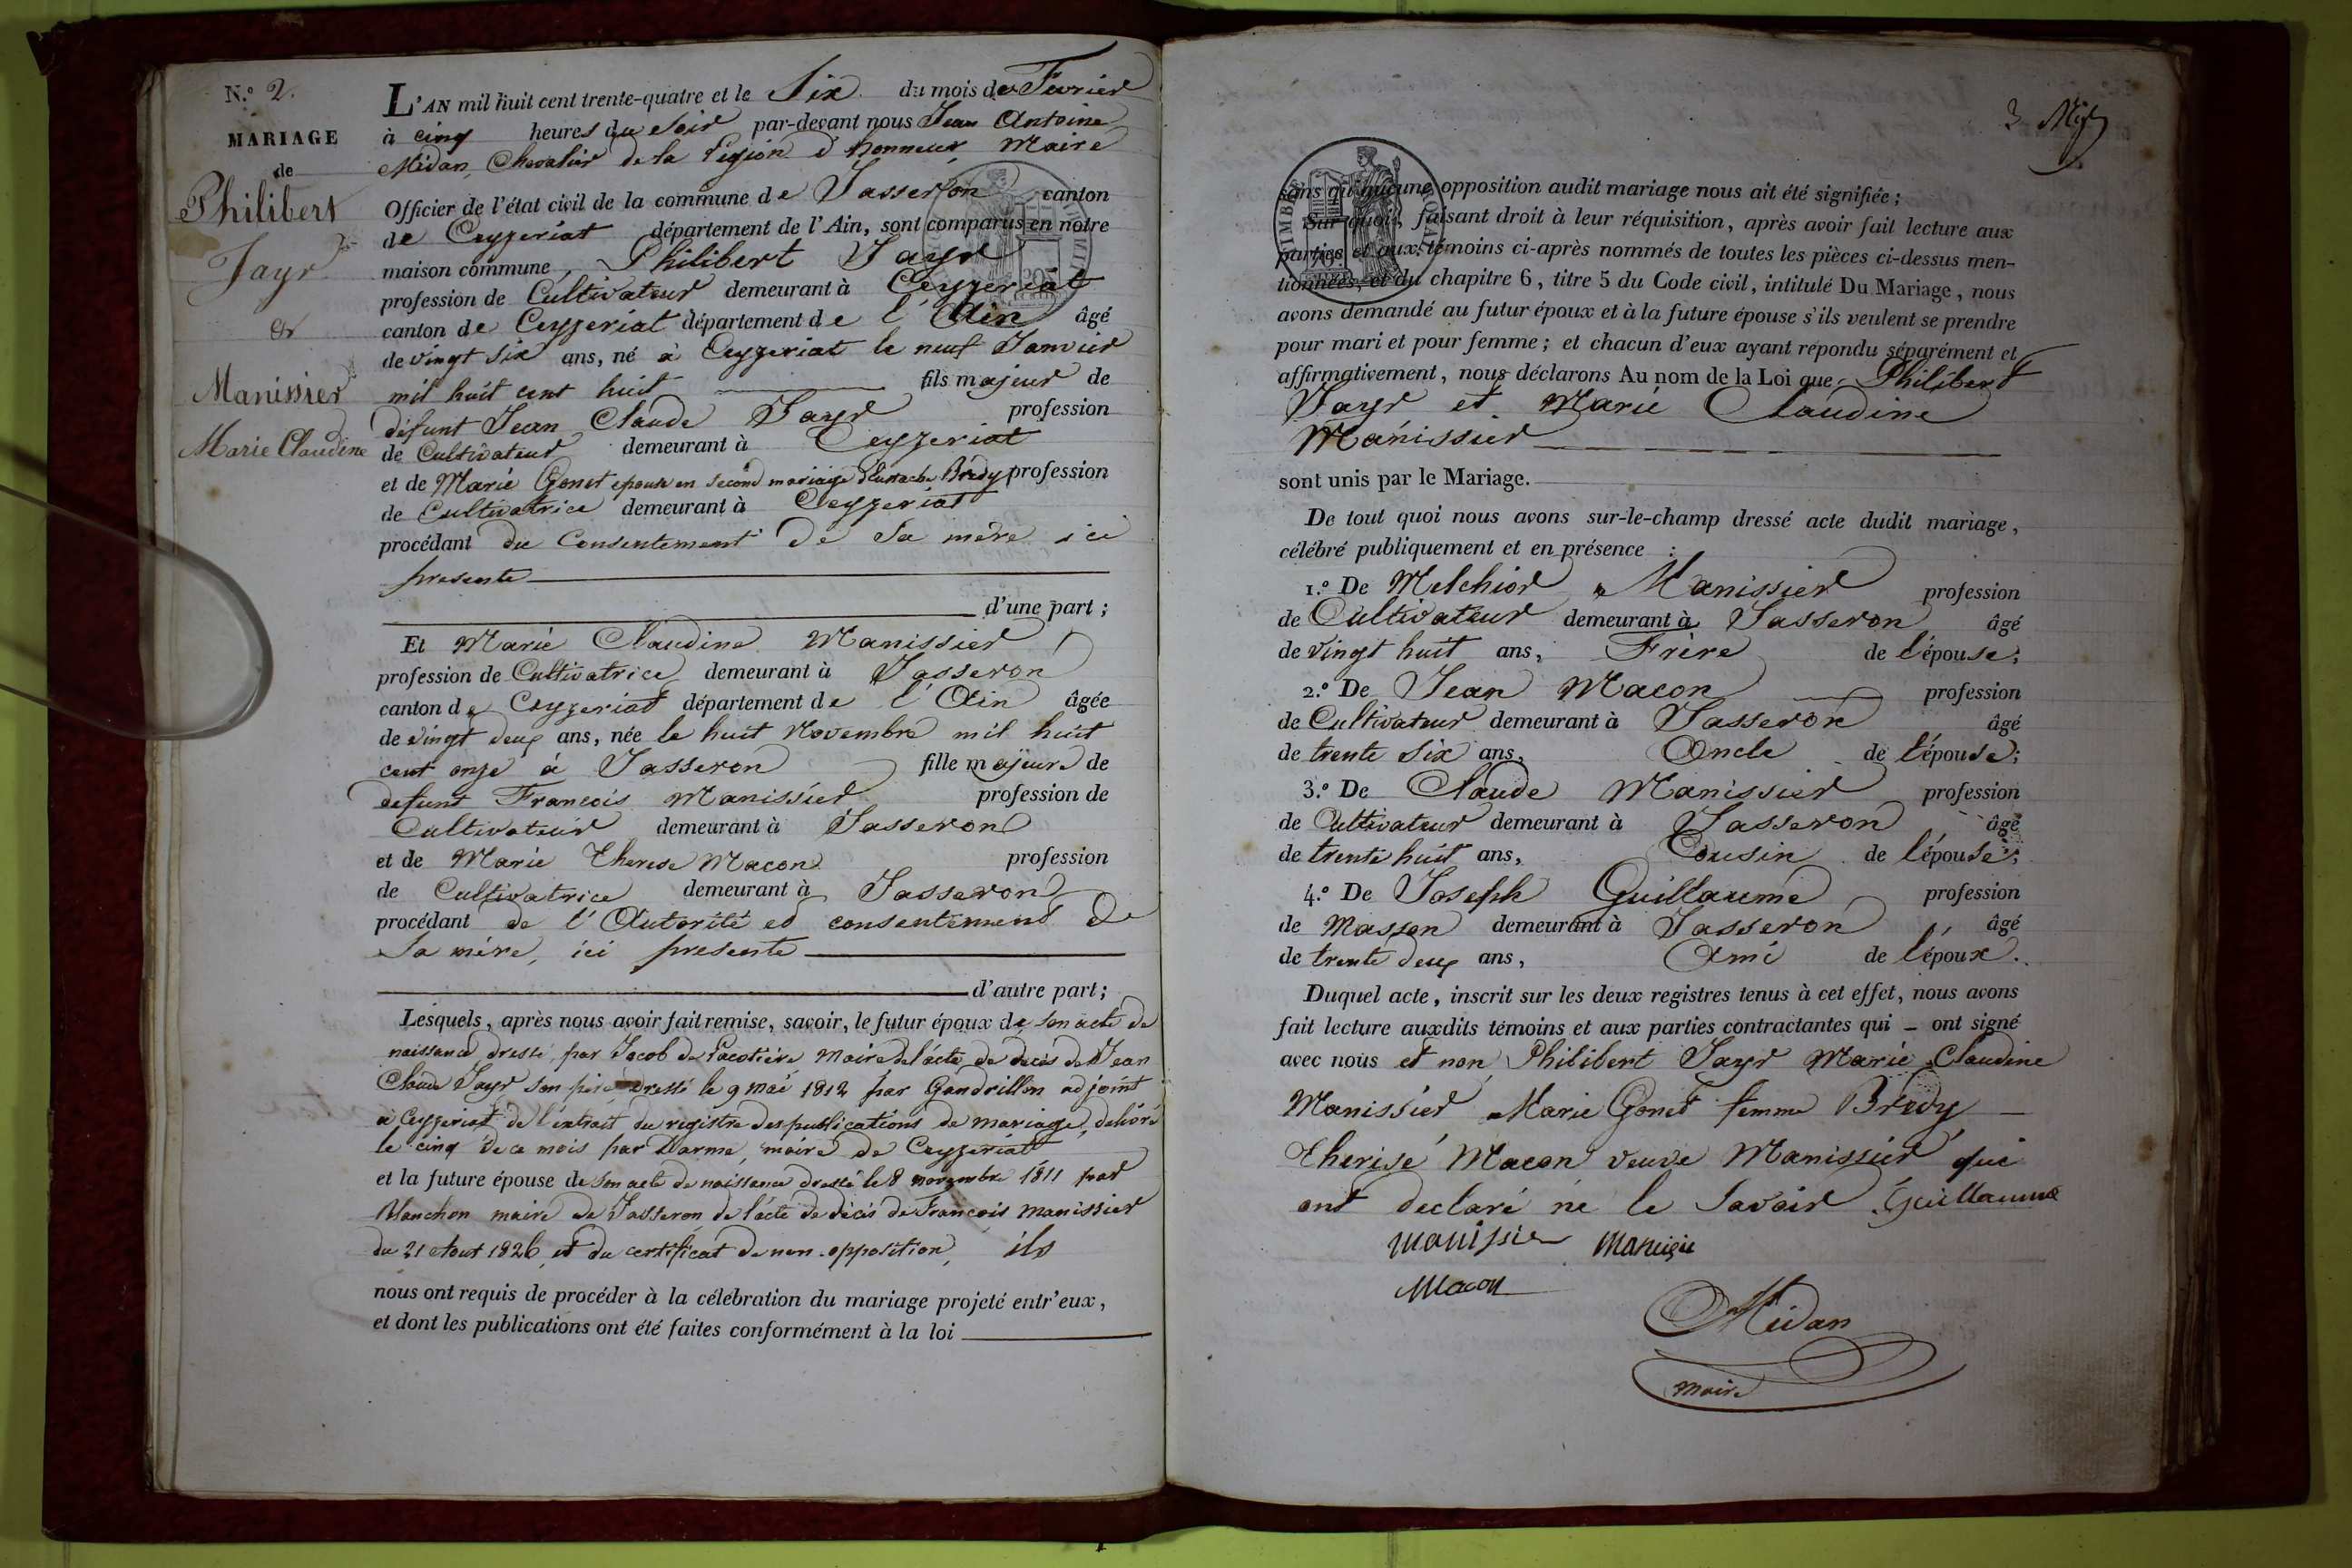 N.° 2.
MARIAGE
de
Philibert
Jayr
et
Manissier
Marie Claudine
L'AN mil huit cent trente-quatre et le Six du mois de Fevrier
à cinq heures du soir par-devant nous Jean Antoine
Midan, Chevalier de la Légion d'honneur, Maire
Officier de l'état civil de la commune de Jasseron canton
de Ceyzeriat département de l'Ain, sont comparus en notre
maison commune, Philibert Jayr
profession de Cultivateur demeurant à Ceyzeriat
canton de Ceyzeriat département de l'Ain âgé
de vingt six ans, né à Ceyzeriat le neuf Janvier
mil huit cent huit fils majeur de
défunt Jean Claude Jayr profession
de Cultivateur demeurant à Ceyzeriat
et de Marie Gonet epouse en second mariage d'Eustache Brédy profession
de Cultivatrice demeurant à Ceyzeriat
procédant du Consentement de sa mère ici
presente
d'une part ;
Et Marie Claudine Manissier
profession de Cultivatrice demeurant à Jasseron
canton de Ceyzeriat département de l'Ain âgée
de vingt deux ans, née le huit Novembre mil huit
cent onze à Jasseron fille majeure de
defunt Francois Manissier profession de
Cultivateur demeurant à Jasseron
et de Marie Therese Macon profession
de Cultivatrice demeurant à Jasseron
procédant de l'Autorité et consentement de
sa mère, ici presente
d'autre part ;
Lesquels, après nous avoir fait remise, savoir, le futur époux de son acte de
naissance dressé par Jacob de Lacotière Maire de l'acte de décès de Jean
Claude Jayr son père dressé le 9 mai 1812 par Gandrillon adjoint
à Ceyzeriat de l'extrait du registre des publications de mariage, délivré
le cinq de ce mois par Darme, maire de Ceyzériat
et la future épouse de son acte de naissance dressé le 8 novembre 1811 par
maire de Jasseron de l'acte de décès de Francois Manissier
du 21 Aout 1826, et du certificat de non-opposition, ils
nous ont requis de procéder à la célébration du mariage projeté entr'eux,
et dont les publications ont été faites conformément à la loi
3
sans qu'aucune opposition audit mariage nous ait été signifiée ;
Sur quoi, faisant droit à leur réquisition, après avoir fait lecture aux
parties et aux témoins ci-après nommés de toutes les pièces ci-dessus men-
tionnées, et du chapitre 6, titre 5 du Code civil, intitulé Du Mariage, nous
avons demandé au futur époux et à la future épouse s'ils veulent se prendre
pour mari et pour femme ; et chacun d'eux ayant répondu séparément et
affirmativement, nous déclarons Au nom de la Loi que Philibert
Jayr et Marie Claudine
Manissier
sont unis par le Mariage.
De tout quoi nous avons sur-le-champ dressé acte dudit mariage,
célébré publiquement et en présence :
1.° De Melchior Manissier profession
de Cultivateur demeurant à Jasseron âgé
de vingt huit ans, Frère de l'épouse ;
2.° De Jean Macon profession
de Cultivateur demeurant à Jasseron âgé
de trente six ans, Oncle de l'épouse ;
3.° De Claude Manissier profession
de Cultivateur demeurant à Jasseron âgé
de trente huit ans, Cousin de l'épouse ;
4.° De Joseph Guillaume profession
de Masson demeurant à Jasseron âgé
de trente deux ans, Ami de l'époux.
Duquel acte, inscrit sur les deux registres tenus à cet effet, nous avons
fait lecture auxdits témoins et aux parties contractantes qui - ont signé
avec nous et non Philibert Jayr Marie Claudine
Manissier Marie Gonet femme Brédy
Therese Macon veuve Manissier qui
ont declaré ne le savoir Guillaume
manissier
Macon
Midan
maire